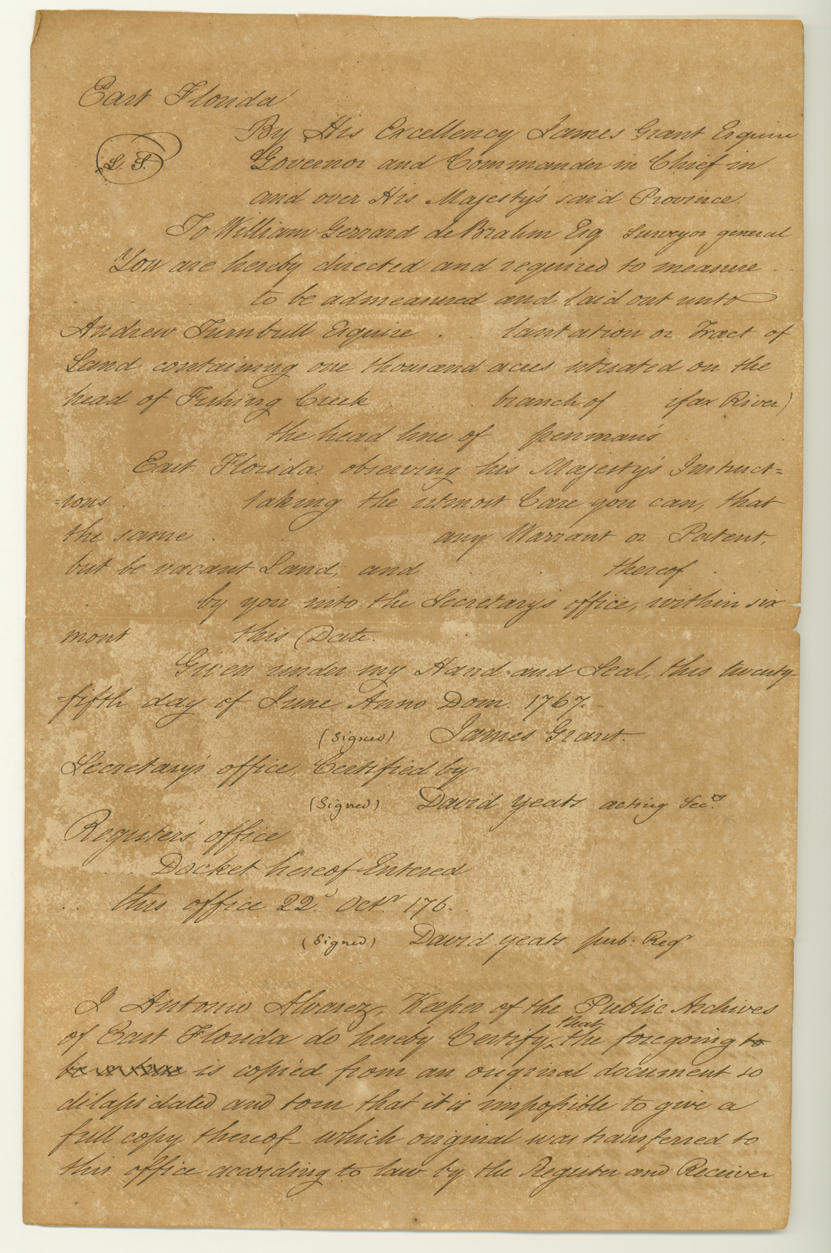 East Florida
By His Excellency James Grant Esquire
L. S.
Governor and Commander in Chief in
and over His Majesty's said Province.
To William Gerrard de Brahm Esq surveyor general
You are hereby directed and required to measure
to be admeasured and laid out unto
Andrew Turnbull Esquire . . lantation or Tract of
Land containing one thousand acres situated on the
head of Fishing Creek branch of ifax River)
the head line of penman's
East Florida. observing his Majesty's Instruct=
=ions taking the utmost Care you can, that
the same any Warrant or Patent,
but be vacant Land, and thereof
by you into the Secretary's office, within six
mont this Date.
Given under my Hand and Seal, this twenty-
fifth day of June Anno Dom. 1767.-
(Signed) James Grant.
Secretary's office, Certified by
(Signed) David Yeats acting Secy.
Register's office
Docket hereof Entered
this office 22d. Octr. 176.
(Signed) David Yeats pub: Regr
I Antonio Alvarez, Keeper of the Public Archives
of East Florida do hereby Certify, that the foregoing to
be is copied from an original document so
dilapidated and torn that it is impossible to give a
full copy thereof - which original was transferred to
this office according to law by the Register and Receiver